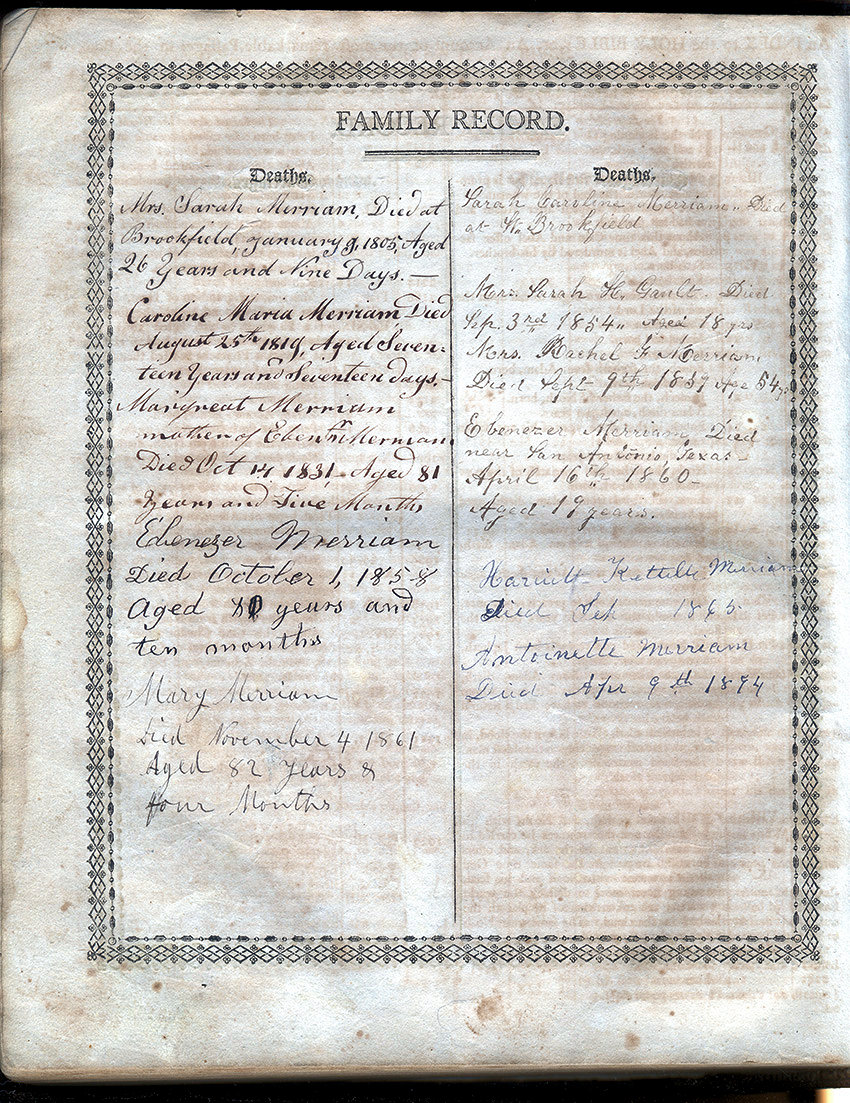 FAMILY RECORD.
Deaths.
Mrs. Sarah Merriam, Died at
Brookfield, January 9, 1805, Aged
26 Years and Nine Days.—
Caroline Maria Merriam Died
August 25th 1819, Aged Seven-
teen Years and Seventeen days.—
Margreat Merriam
mother of Ebenr Merriam
Died Oct 14 1831– Aged 81
Years and Five Months
Ebenezer Merriam
Died October 1, 1858
Aged years and
ten months
Mary Merriam
Died November 4 1861
Aged 82 Years &
four Months
Deaths.
Sarah Caroline Merriam.. Died
at W. Brookfield
Mrs. Sarah H. Gault. Died
Sep. 3rd 1854.. Aged 18 yrs
Mrs. Rachel F Merriam
Died Sept 9th 1857 Age 54
Ebenezer Merriam Died
near San Antonio Texas–
April 16th 1860–
Aged 19 years.
Harriett Kettell Merriam
Died Sep 1865
Antoinette Merriam
Died Apr 9th 1894